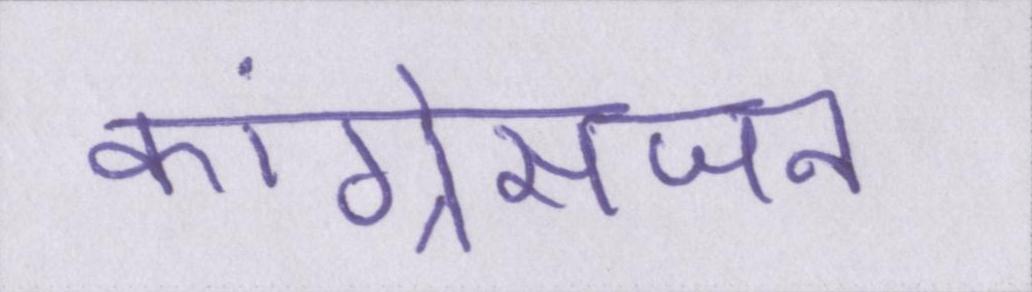 कांग्रेसजन